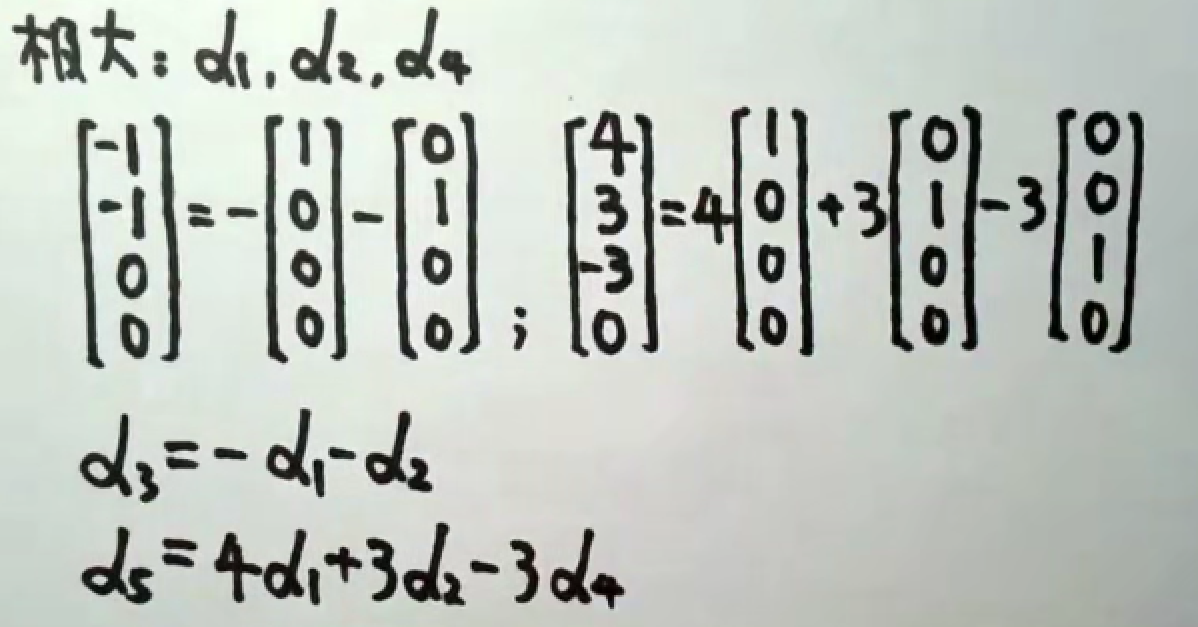 极大：α₁,α₂,α₄
[-1 -1 0 0] = -[1 0 0 0] - [0 1 0 0] ; [4 3 -3 0] = 4[1 0 0 0] + 3[0 1 0 0] - 3[0 0 1 0]
α₃=-α₁-α₂
α₅=4α₁+3α₂-3α₄